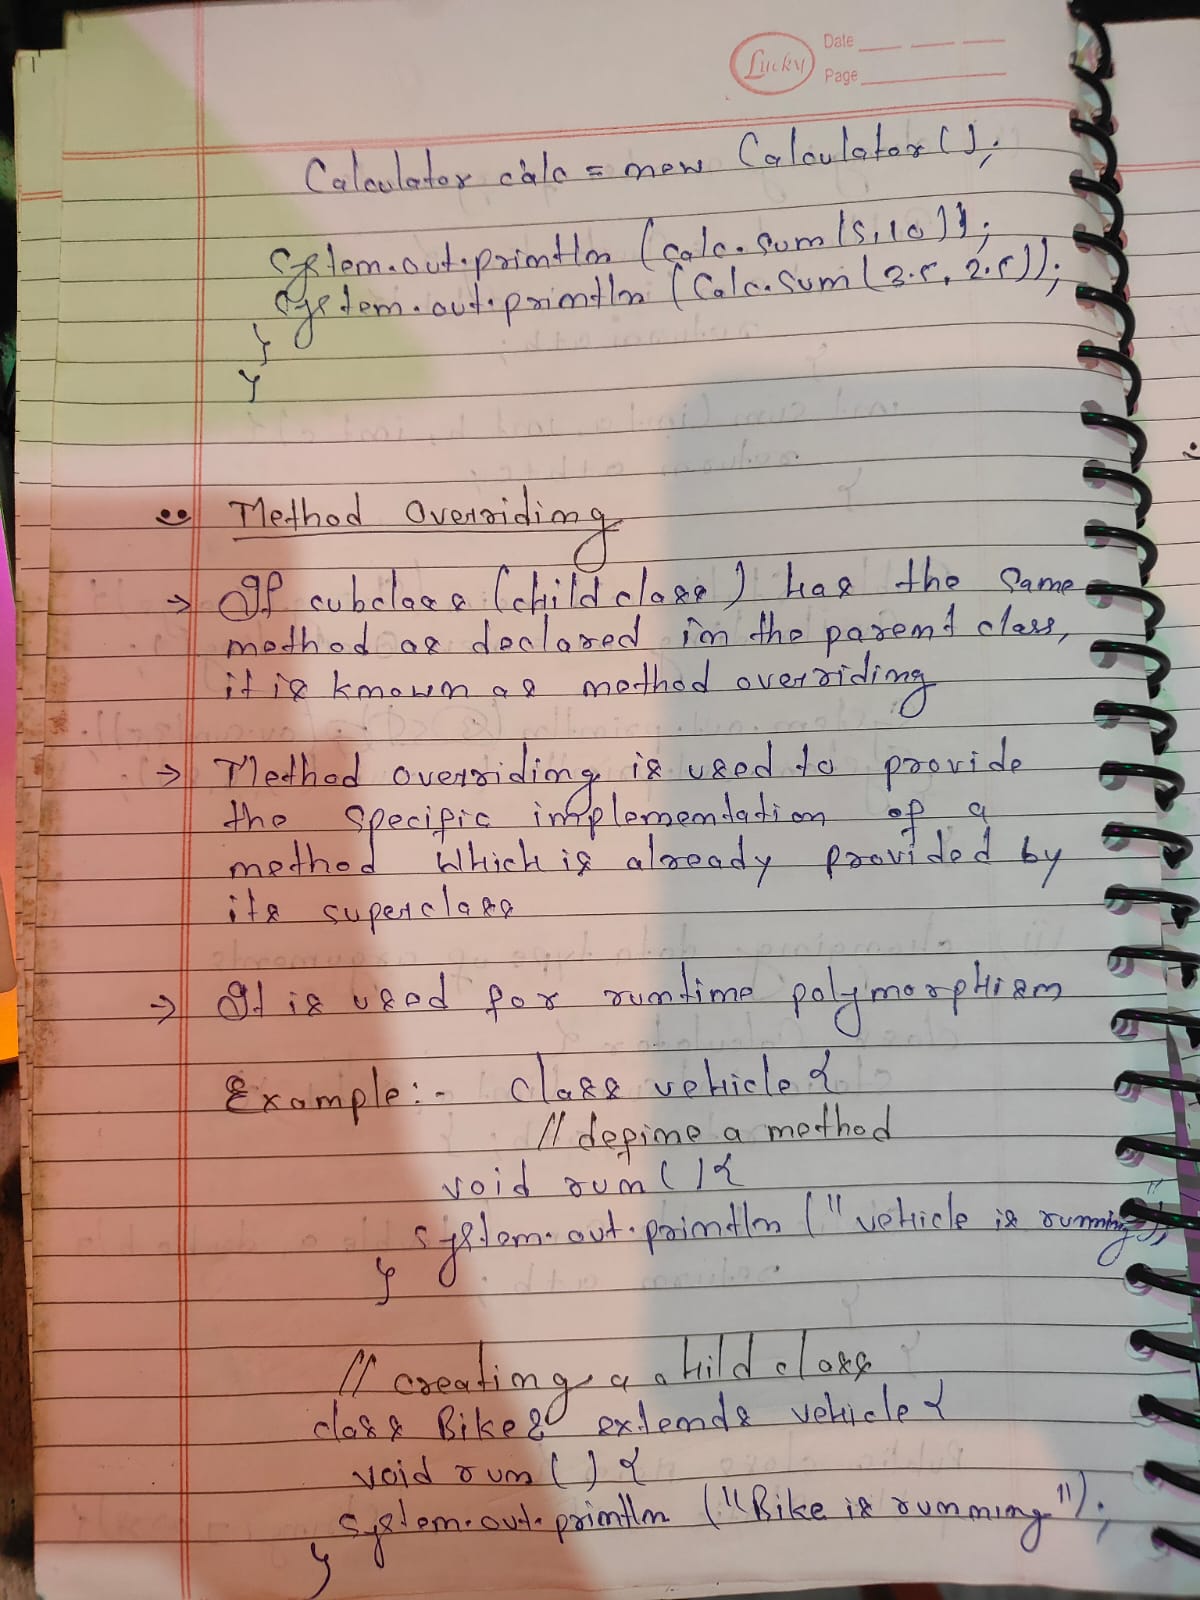 Lucky
Date
Page
Calculator calc = new Calculator();
System.out.println (calc.sum(5,10));
System.out.println (Calc.Sum(3.5, 2.5));
}
}
Method Overriding
→ If subclass (child class) has the same
method as declared in the parent class,
it is known as method overriding
→ Method overriding is used to provide
the specific implementation of a
method which is already provided by
its superclass
→ It is used for runtime polymorphism
Example:- class vehicle {
// define a method
void run () {
System.out.println ("vehicle is running");
}
// creating a child class
class Bike2 extends vehicle {
void run () {
system.out.println ("Bike is running");
}